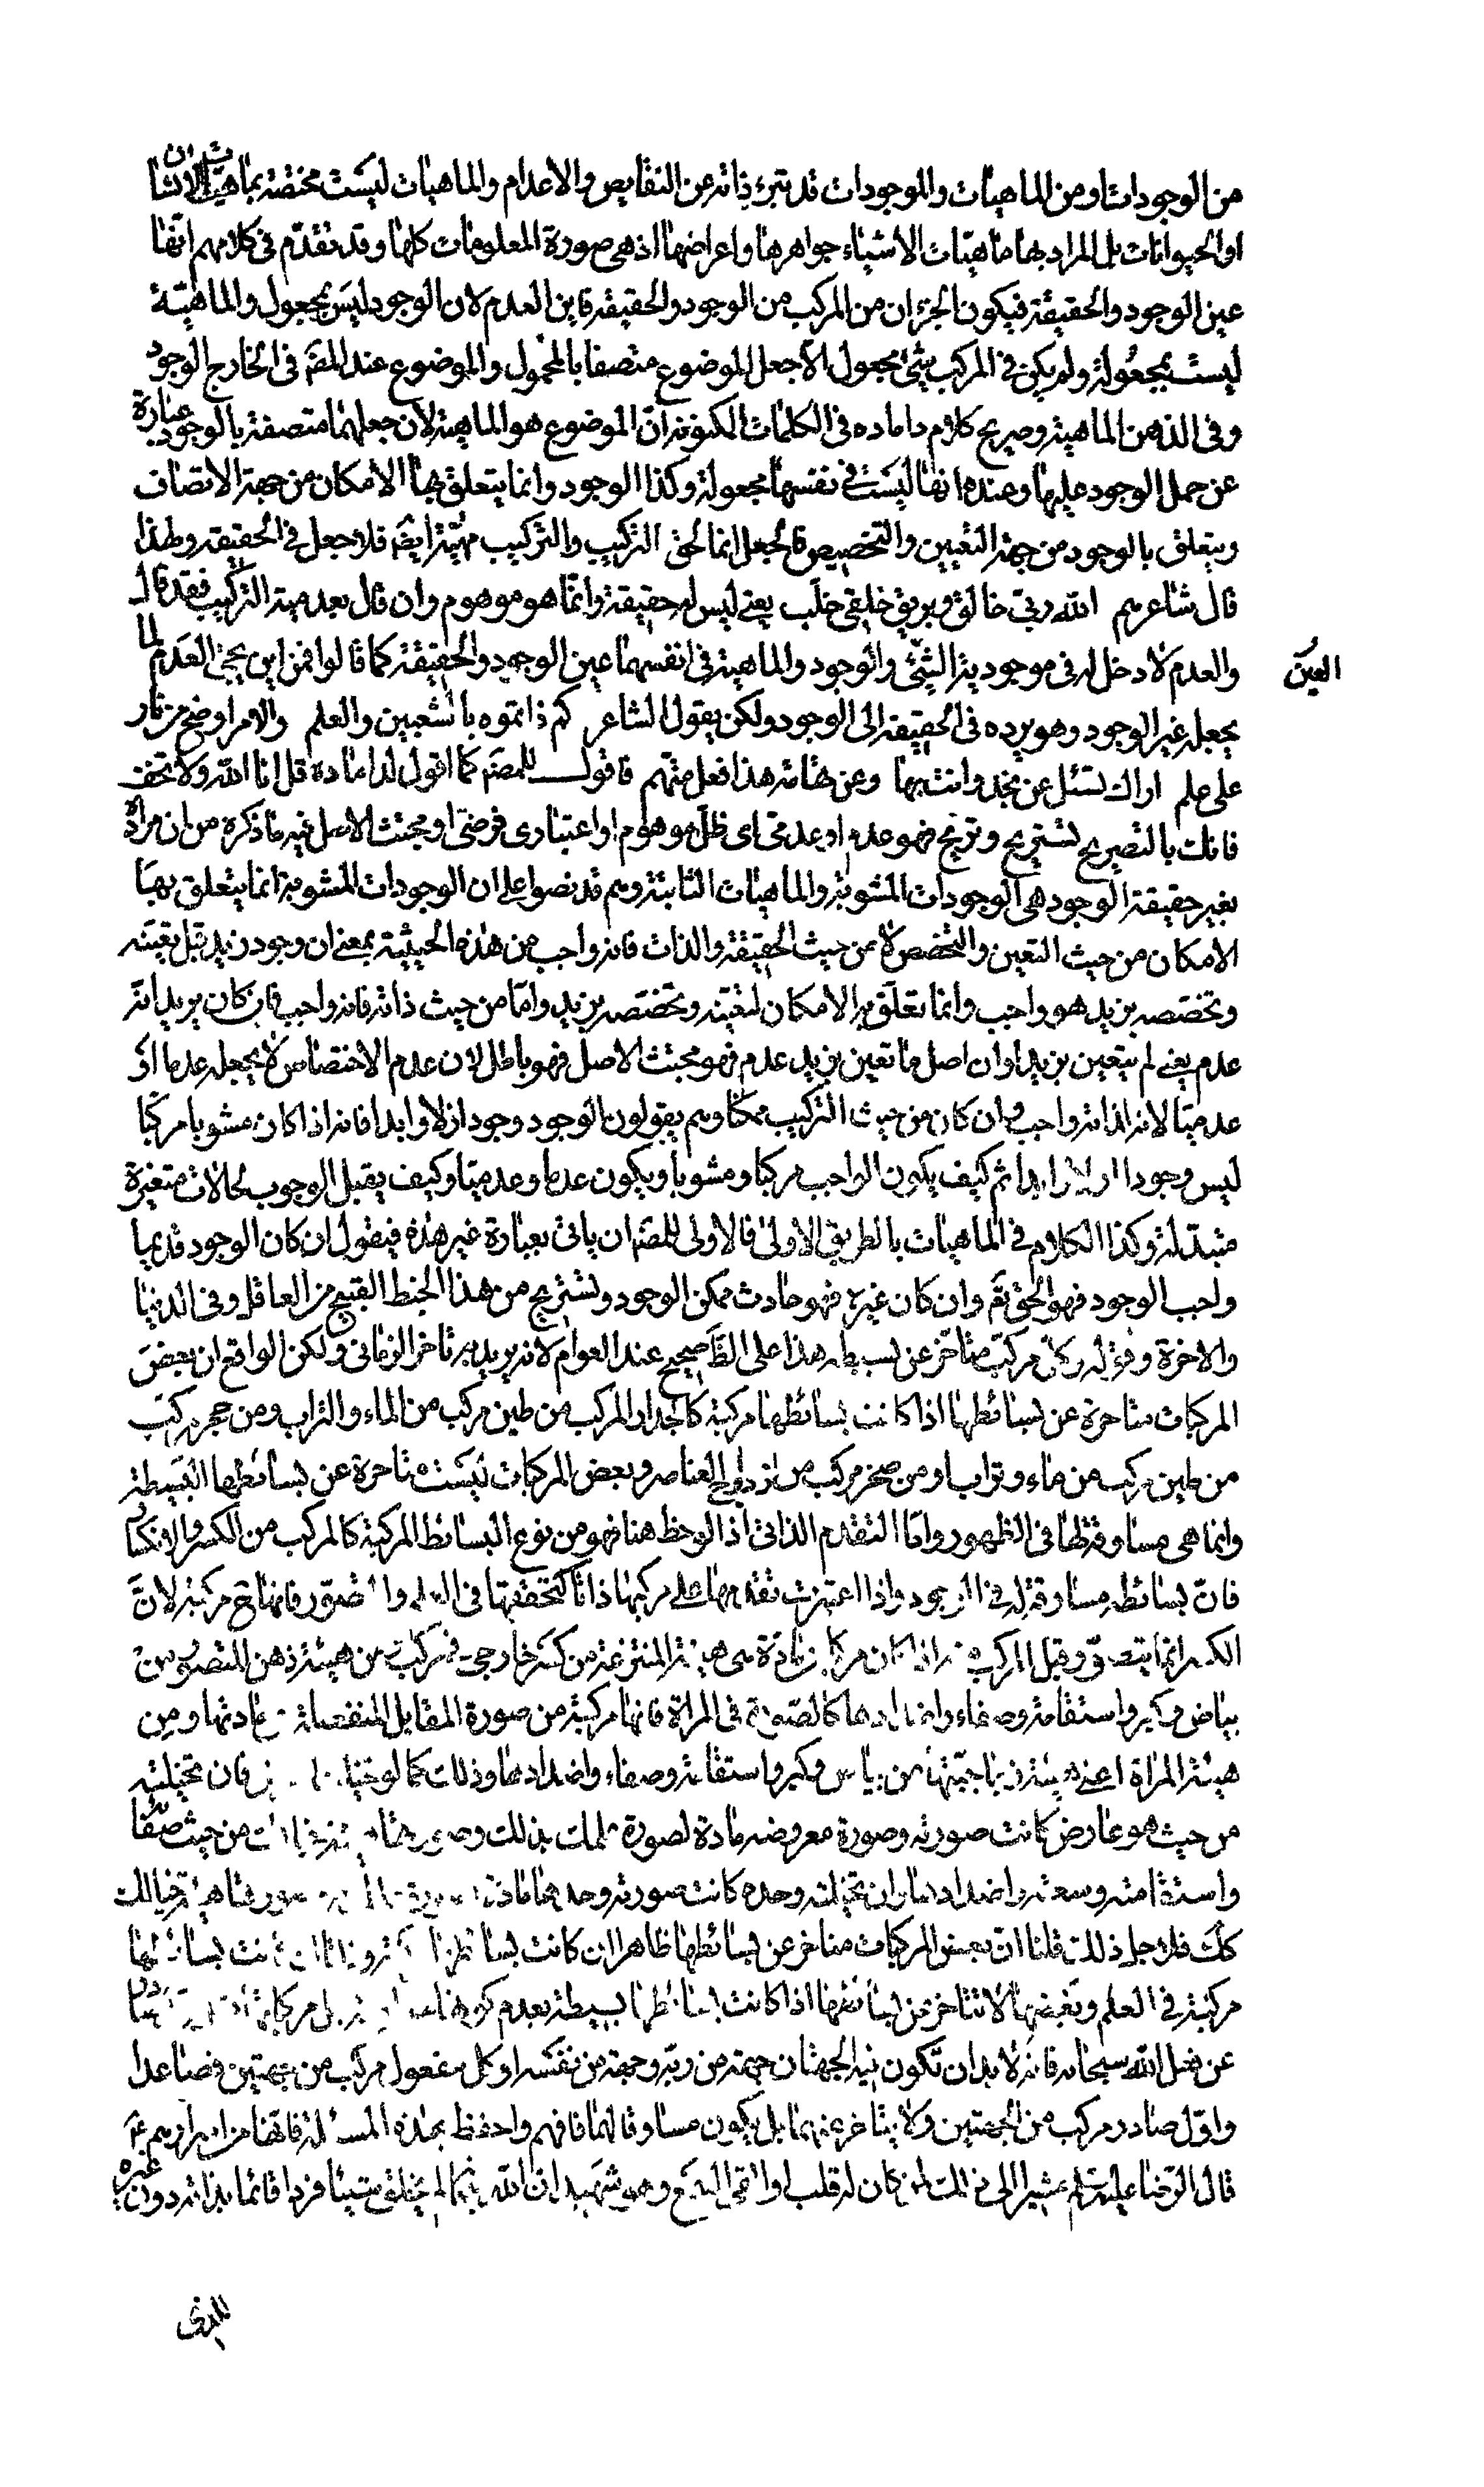 من الوجودات او من الماهيات والموجودات قد تبرء ذاته عن النقايص والاعدام والماهيات ليست مختصة بماهيات الانسان
او الحيوانات بل المراد بها ماهيات الاشياء جواهرها واعراضها اذ هى صورة المعلومات كلها وقد تقدم فى كلامهم انها
عين الوجود والحقيقة فيكون الجزءان من المركب من الوجود والحقيقة فاين العدم لان الوجود ليس بمجعول والماهية
ليست بمجعولة ولم يكن فى المركب شئ مجعول الا جعل الموضوع متصفا بالمحمول والموضوع عند المصم فى الخارج الوجود
وفى الذهن الماهية وصريح كلام داماده فى الكلمات المكنونة ان الموضوع هو الماهية لان جعلهما متصفة بالوجود عبارة
عن حمل الوجود عليها وعنده انها ليست فى نفسها مجعولة وكذا الوجود وانما يتعلق بها الامكان من جهة الاتصاف
ويتعلق بالوجود من جهة التعيين والتخصيص فالجعل انما لحق التركيب والتركيب مهية ايضم فلا جعل فى الحقيقة ولهذا
قال شاعرهم الله ربى خالق وبريق خلقى خلب يعنى ليس له حقيقة وانما هو موهوم وان قال بعدمية التركيب فقد قال
والعدم لا دخل له فى موجودية الشئ والوجود والماهية فى انفسهما عين الوجود والحقيقة كما قالوا فمن اين يجئ العدم لما
العين
يجعله غير الوجود وهو يرده فى الحقيقة الى الوجود ولكن يقول الشاعر كم ذا تموه بالشعبين والعلم والامر اوضح من نار
على علم اراك تسئل عن نجد وانت بها وعن تهامة هذا فعل متهم فاقول للمصم كما اقول لداماده قل انا الله ولا تخف
فانك بالتصريح تستريح وتريح فهو عدم او عدمى اى ظل موهوم او اعتبارى فرضى او مجتث الاصل فيه ما ذكره من ان مراده
بغير حقيقة الوجود هى الوجودات المشوبة والماهيات الثابتة وهم قد نصوا على ان الوجودات المشوبة انما يتعلق بها
الامكان من حيث التعين والتخصص لا من حيث الحقيقة والذات فانه واجب من هذه الحيثية بمعنى ان وجود زيد قبل تعينه
وتخصصه بزيد هو واجب وانما تعلق به الامكان لتعينه وتخصصه بزيد واما من حيث ذاته فانه واجب فان كان يريد انه
عدم يعنى لم يتعين بزيد او ان اصل ما تعين بزيد عدم فهو مجتث الاصل فهو باطل لان عدم الاختصاص لا يجعله عدما او
عدميا لانه لذاته واجب وان كان من حيث التركيب ممكنا وهم يقولون الوجود وجود ازلا وابدا فانه اذا كان مشوبا مركبا
ليس وجودا ازلا وابدا ثم كيف يكون الواجب مركبا ومشوبا ويكون عدما وعدميا وكيف يقبل الوجوب لحالات متغيرة
متبدلة وكذا الكلام فى الماهيات بالطريق الاولى فالاولى للمصم ان ياتى بعبارة غير هذه فيقول ان كان الوجود قديما
واجب الوجود فهو الحق تع وان كان غيره فهو حادث ممكن الوجود وتستريح من هذا الخبط القبيح من العاقل وفى الدنيا
والاخرة وقوله وكل مركب متأخر عن بسيطه هذا على الظاهر صحيح عند العوام لانه يريد به تاخر الزمانى ولكن الواقع ان بعض
المركبات متاخرة عن بسائطها اذا كانت بسائطها مركبة كالجدار المركب من طين مركب من الماء والتراب ومن حجر مركب
من طين مركب من ماء وتراب او من صخر مركب من ازدواج العناصر وبعض المركبات ليست متاخرة عن بسائطها البسيطة
وانما هى مساوقة لها فى الظهور واما التقدم الذاتى اذا لوحظ هنا فهو من نوع البسائط المركبة كالمركب من الكسر والانكسار
فان بسائطه مساوقة له فى الوجود واذا اعتبرت تقدمها على مركبها ذاتا كتحققها فى العلم والتصور فانها ح مركبة لان
الكسر انما يتصور قبل المركب اذا كان مركبا من مادة هى هيئة المنتزعة من كسر خارجى فمركب من هيئة ذهن المتصور من
بياض وكبر واستقامة وصفاء واضدادها كالصورة فى المراة فانها مركبة من صورة المقابل المنفصلة مادتها ومن
هيئة المراة اعنى هيئة زجاجيتها من بياض وكبر واستقامة وصفاء واضدادها وذلك كما لو فان تخيلته
من حيث هو عارض كانت صورته وصورة معروضه مادة لصورة علمك بذلك وصورتهما من حيث صفائه
واستقامته وسعته واضدادها وان تخيلته وحده كانت صورته وحدها مادة خيالك
كك فلاجل ذلك قلنا ان بعض المركبات متاخر عن بسائطها ظاهرا ان كانت بسائطها كانت بسائطها
مركبة فى العلم وبعضها لا تتاخر عن بسائطها اذا كانت بسائطها بسيطة بعدم كونها بل مركبا
عن فعل الله سبحانه فانه لا بد ان تكون فيه الجهتان جهة من ربه وجهة من نفسه او كل مفعول مركب من جهتين فصاعدا
واول صادر مركب من الجهتين ولا يتاخر عنهما بل يكون مساوقا لهما فافهم واحفظ بهذه المسئلة فانها من
قال الرضا عليه السلم مشيرا الى ذلك لمن كان له قلب او القى السمع وهو شهيد ان الله لم يخلق شيئا فردا قائما بذاته دون غيره
للذى